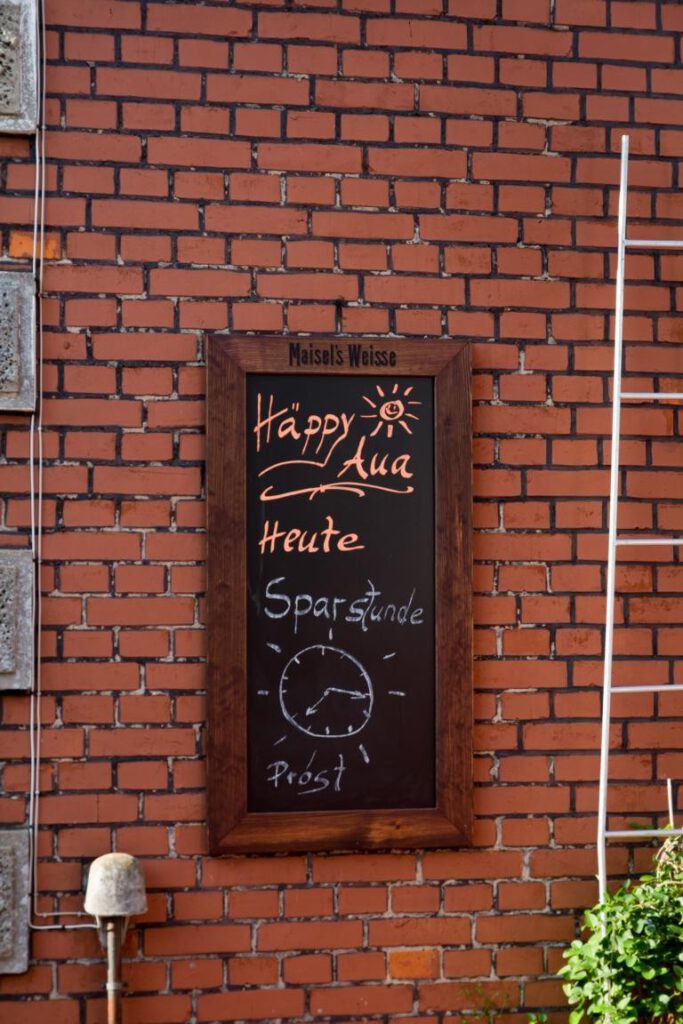 Maisel's Weisse
Häppy
Aua
Heute
Sparstunde
Próst